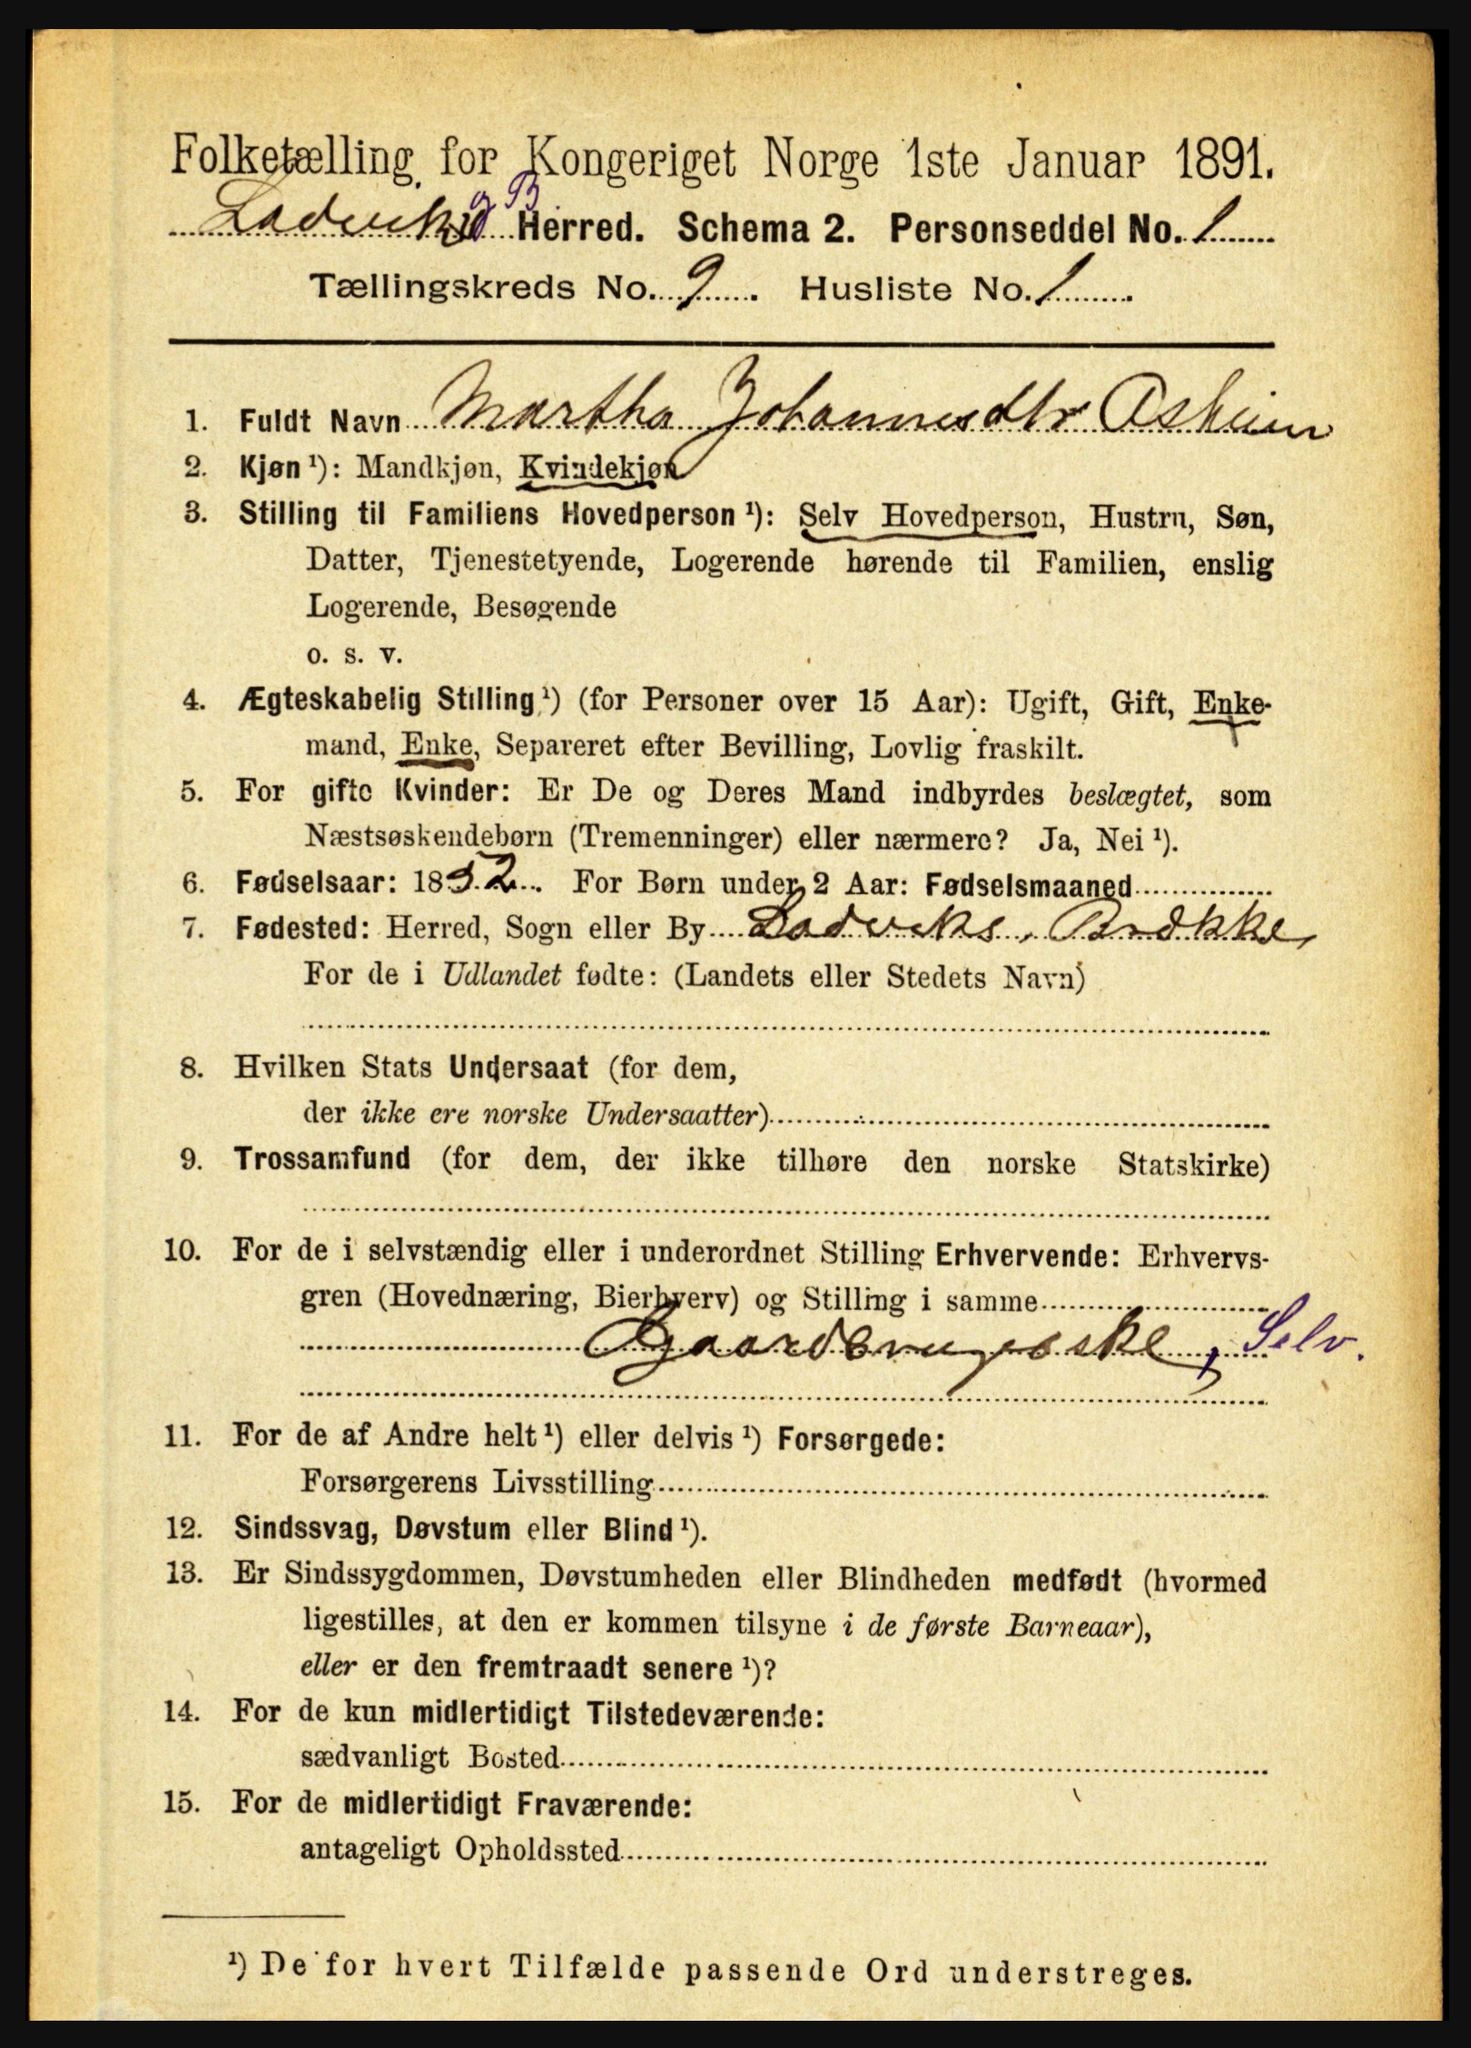 Folketælling for Kongeriget Norge 1ste Januar 1891.
Ladvik og B. Herred. Schema 2. Personseddel No. 1
Tællingskreds No. 9. Husliste No. 1.
1. Fuldt Navn Martha Johannesdtr Asheim
2. Kjøn ¹): Mandkjøn, Kvindekjøn
3. Stilling til Familiens Hovedperson ¹): Selv Hovedperson, Hustru, Søn,
Datter, Tjenestetyende, Logerende hørende til Familien, enslig
Logerende, Besøgende
o. s. v.
4. Ægteskabelig Stilling ¹) (for Personer over 15 Aar): Ugift, Gift, Enke-
mand, Enke, Separeret efter Bevilling, Lovlig fraskilt.
5. For gifte Kvinder: Er De og Deres Mand indbyrdes beslægtet, som
Næstsøskendebørn (Tremenninger) eller nærmere? Ja, Nei ¹).
6. Fødselsaar: 1852. For Børn under 2 Aar: Fødselsmaaned
7. Fødested: Herred, Sogn eller By Ladviks, Brække
For de i Udlandet fødte: (Landets eller Stedets Navn)
8. Hvilken Stats Undersaat (for dem,
der ikke ere norske Undersaatter)
9. Trossamfund (for dem, der ikke tilhøre den norske Statskirke)
10. For de i selvstændig eller i underordnet Stilling Erhvervende: Erhvervs-
gren (Hovednæring, Bierhverv) og Stilling i samme
Gaardbrugerske, Selv.
11. For de af Andre helt ¹) eller delvis ¹) Forsørgede:
Forsørgerens Livsstilling
12. Sindssvag, Døvstum eller Blind ¹).
13. Er Sindssygdommen, Døvstumheden eller Blindheden medfødt (hvormed
ligestilles, at den er kommen tilsyne i de første Barneaar),
eller er den fremtraadt senere ¹)?
14. For de kun midlertidigt Tilstedeværende:
sædvanligt Bosted
15. For de midlertidigt Fraværende:
antageligt Opholdssted
¹) De for hvert Tilfælde passende Ord understreges.